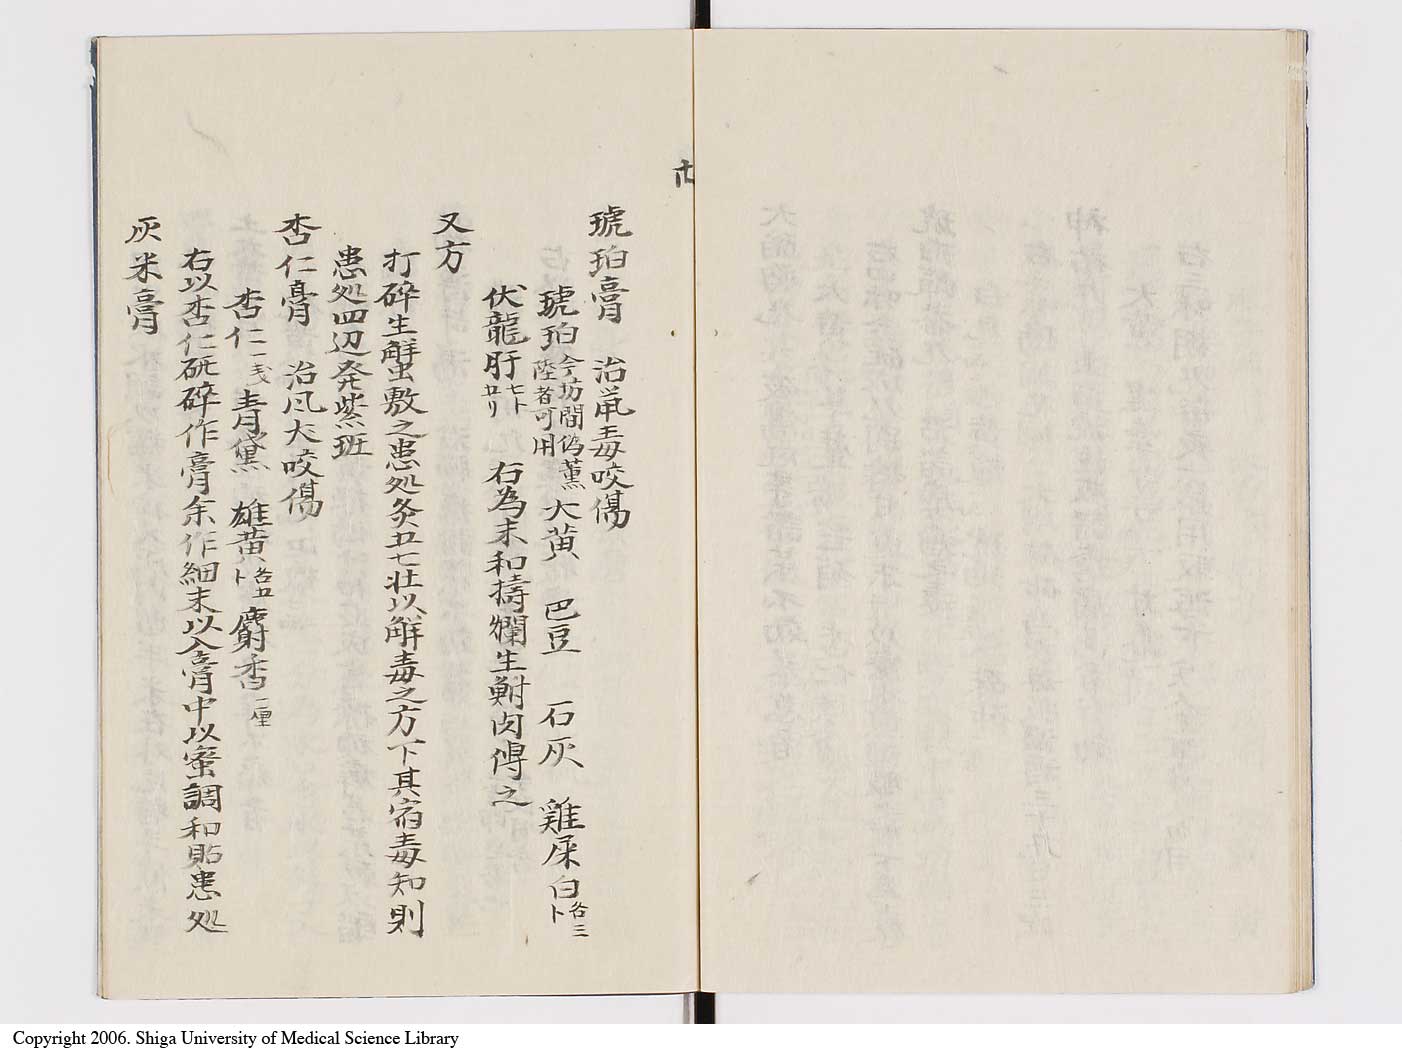 琥珀膏　治鼠毒咬傷
琥珀今坊間偽薫陸者可用　大黄　巴豆　石灰　雞屎白各三卜
伏龍肝七卜五リ　右為末和擣爛生鮒肉傅之
又方
打碎生蟹敷之患処灸五七壮以解毒之方下其宿毒知則
患処四辺発紫班
杏仁膏　治风犬咬傷
杏仁一戋　青黛　雄黄各五卜　麝香二厘
右以杏仁研碎作膏余作細末以入膏中以蜜調和貼患処
灰米膏
Copyright 2006. Shiga University of Medical Science Library